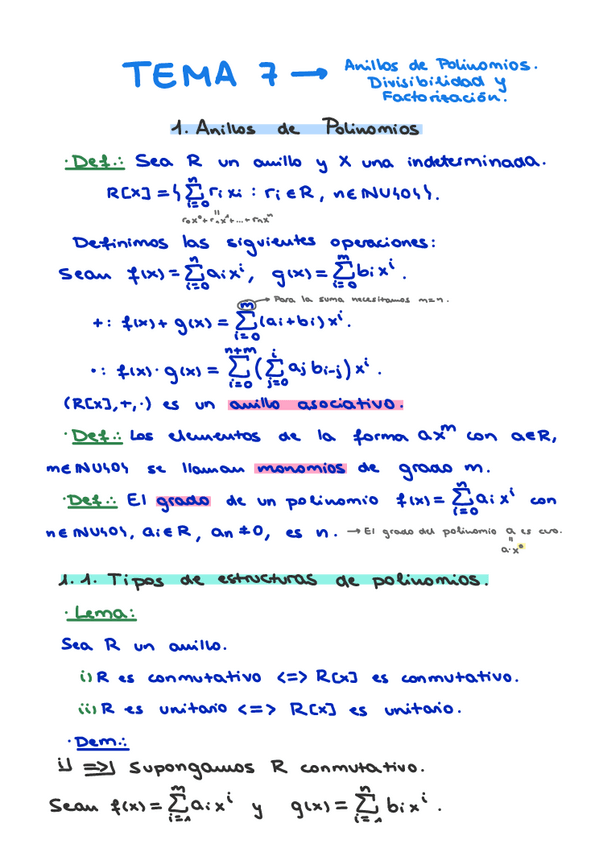 TEMA 7 → Anillos de Polinomios.
Divisibilidad y
Factorización.
1. Anillos de Polinomios
· Def.: Sea R un anillo y X una indeterminada.
R[x] = { ∑_{i=0}^{n} r_i x_i : r_i ∈ R, n ∈ ℕ∪{0} }.
r_0x^0 + r_1x^1 + ... + r_nx^n
Definimos las siguientes operaciones:
Sean f(x) = ∑_{i=0}^{n} a_i x^i, g(x) = ∑_{i=0}^{m} b_i x^i.
→ Para la suma necesitamos m=n.
+: f(x) + g(x) = ∑_{i=0}^{m} (a_i + b_i) x^i.
·: f(x) · g(x) = ∑_{i=0}^{n+m} ( ∑_{j=0}^{i} a_j b_{i-j} ) x^i.
(R[x], +, ·) es un anillo asociativo.
· Def.: Los elementos de la forma ax^m con a∈R,
m∈ℕ∪{0} se llaman monomios de grado m.
· Def.: El grado de un polinomio f(x) = ∑_{i=0}^{n} a_i x^i con
n∈ℕ∪{0}, a_i∈R, a_n ≠ 0, es n. → El grado del polinomio a es cero.
a·x^0
1.1. Tipos de estructuras de polinomios.
· Lema:
Sea R un anillo.
i) R es conmutativo <=> R[x] es conmutativo.
ii) R es unitario <=> R[x] es unitario.
· Dem.:
i) =>) Supongamos R conmutativo.
Sean f(x) = ∑_{i=1}^{m} a_i x^i y g(x) = ∑_{i=1}^{n} b_i x^i.